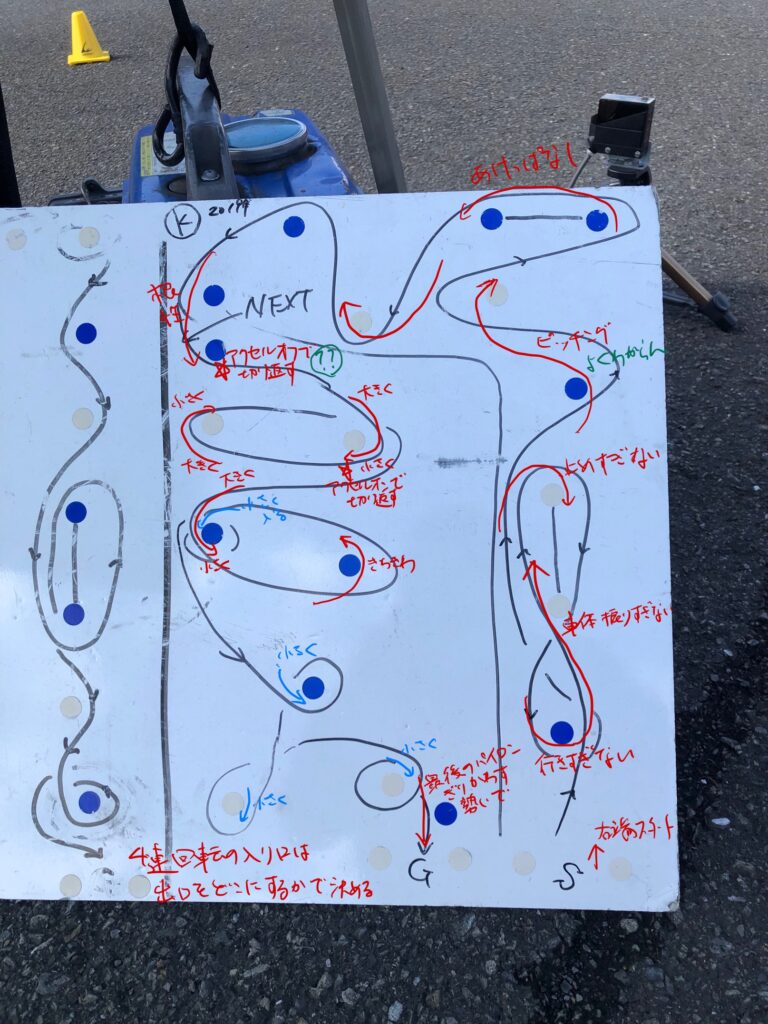 K
あけっぱなし
NEXT
アクセルオフで
切り返す
??
ピッチング
よくわからん
小さく
大きく
大きく
小さく
大きく
アクセルオンで
切り返す
止めすぎない
小さく
入る
小さく
きちきち
車体振りすぎない
小さく
行きすぎない
小さく
最後のパイロン
小さく
右端スタート
G
S
4連回転の入り口は
出口をどこにするかで決める